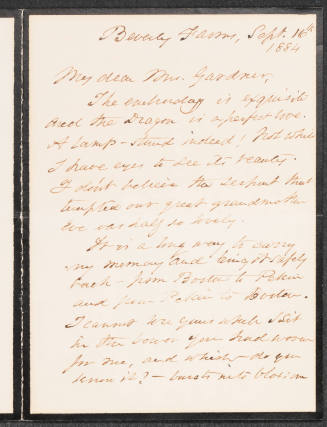 Beverly Farms, Sept. 16th
1884
My dear Mrs. Gardner,
The embroidery is exquisite
and the Dragon is a perfect love.
A Lamp-stand indeed! Not while
I have eyes to see its beauty.
I don't believe the serpent that
tempted our great grandmother
Eve was half so lovely.
It is a long way to carry
my memory and bring it safely
back – from Boston to Pekin
and from Pekin to Boston.
I cannot lose yours while I sit
in the bower you had
for me, and which – do you
know it? – bursts into blossom